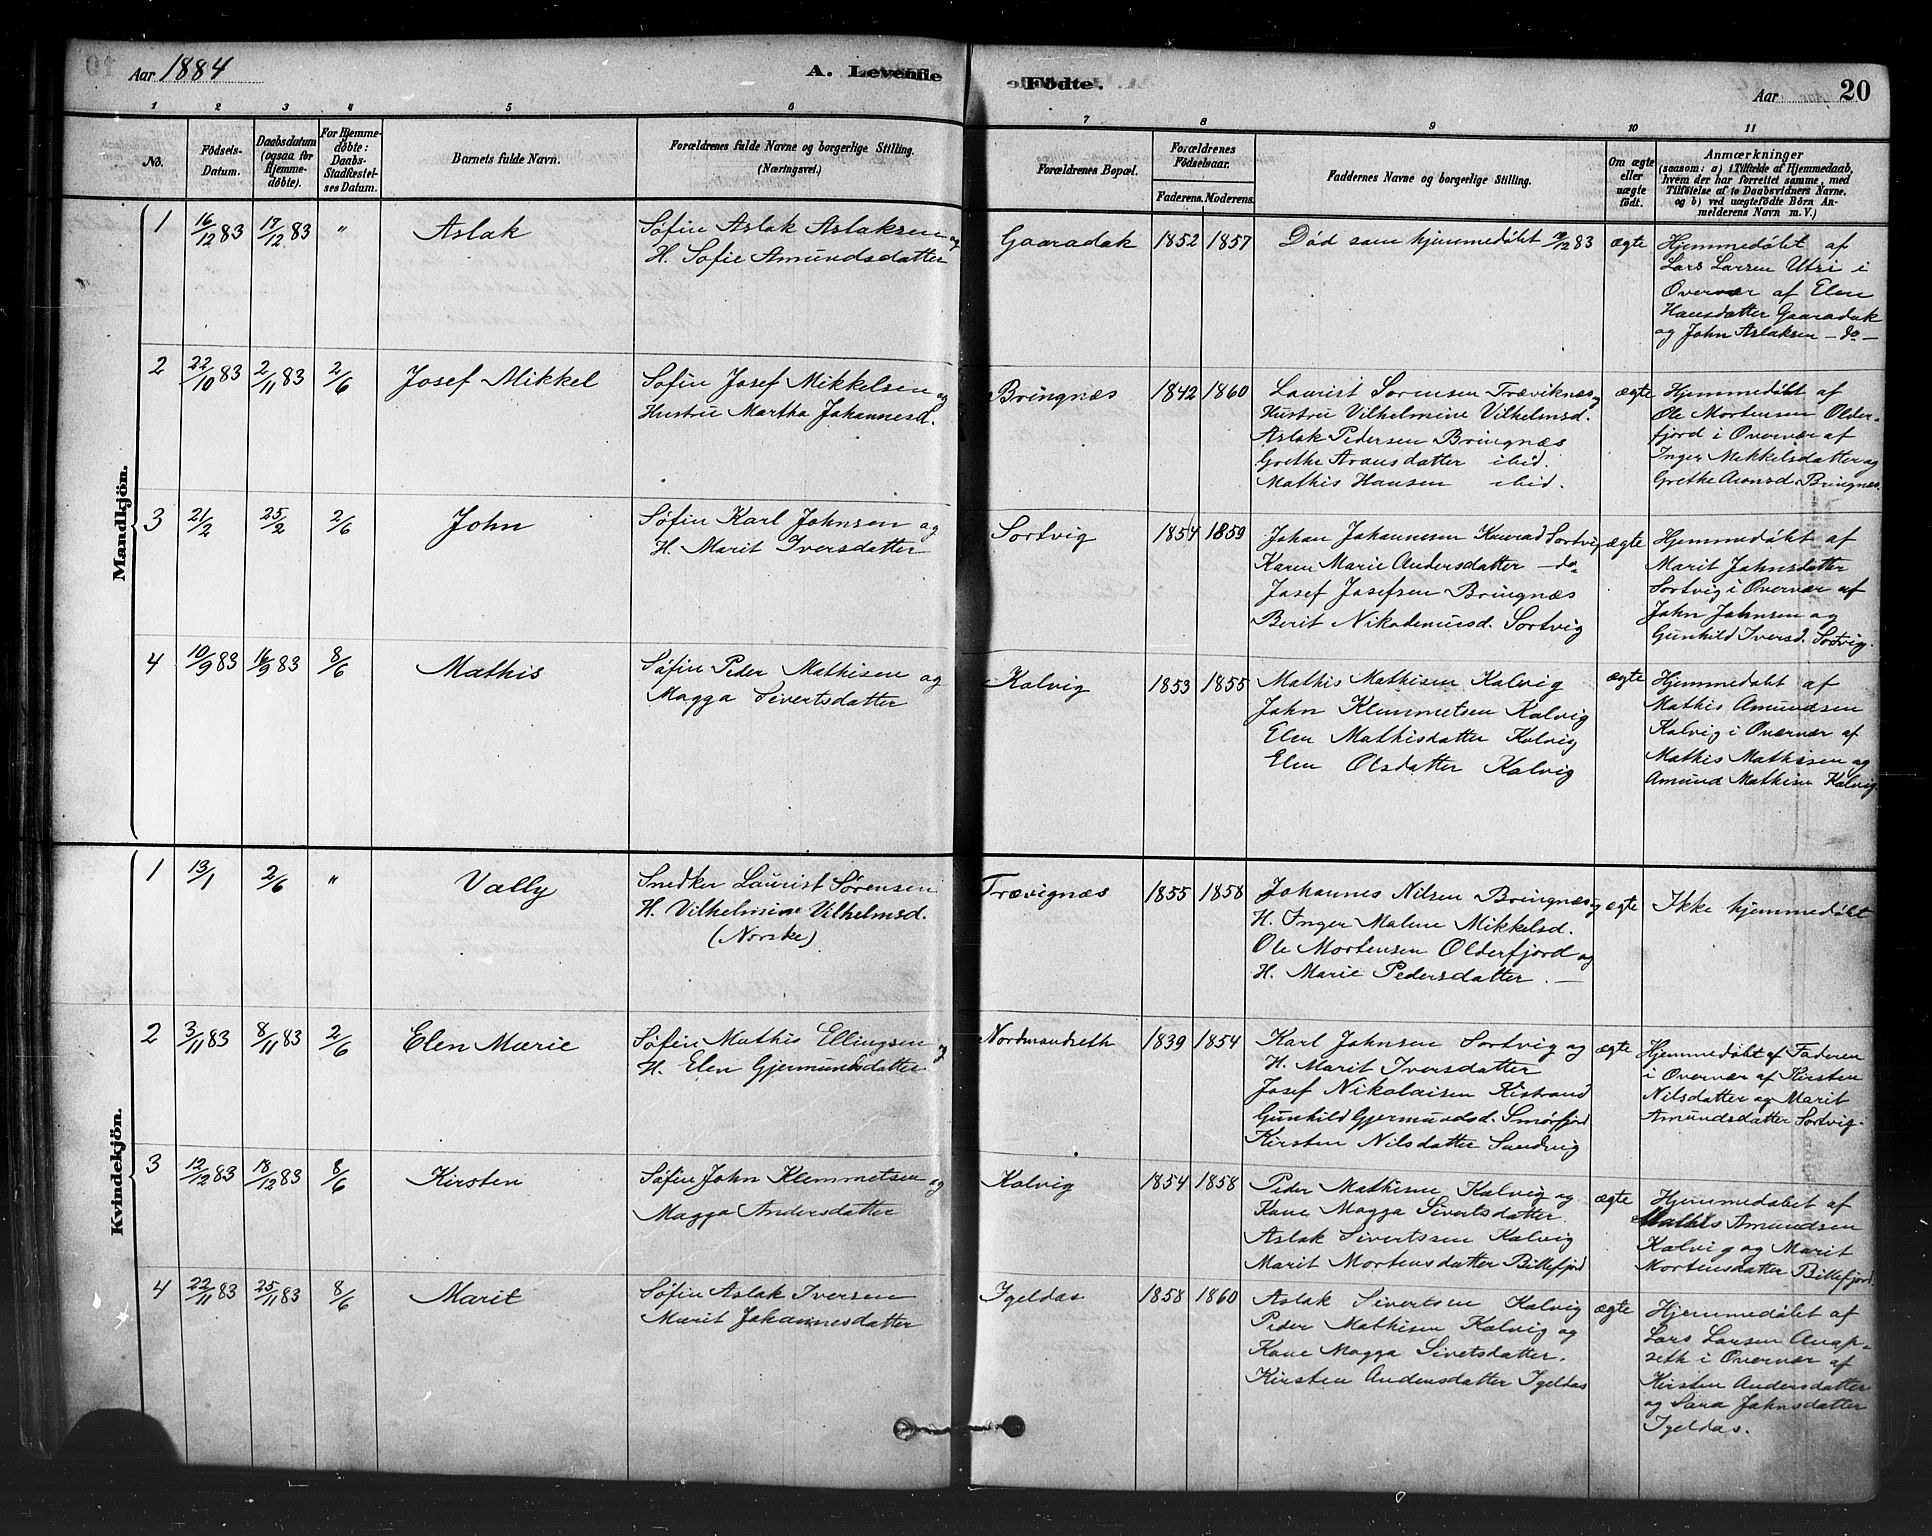 Aar 1884
A. Levende
Födte.
Aar
20
1 2 3 4 5 6 7 8 9 10 11
No.
Födsels-
Datum.
Daabsdatum
(ogsaa for
Hjemme-
döbte).
For Hjemme-
döbte:
Daabs-
Stadfæstel-
ses Datum.
Barnets fulde Navn.
Forældrenes fulde Navne og borgerlige Stilling.
(Næringsvei.)
Forældrenes Bopæl.
Forældrenes
Födselsaar.
Faderens. Moderens.
Faddernes Navne og borgerlige Stilling.
Om ægte
eller
uægte
födt.
Anmærkninger
(saasom: a) i Tilfælde af Hjemmedaab,
hvem der har forrettet samme, med
Tilföielse af to Daabsvidners Navne,
og b) ved uægtefödte Börn An-
melderens Navn m. V.)
Mandkjön.
1
16/12 83
17/12 83
"
Aslak
Søfin Aslak Aslaksen og
H. Sofie Amundsdatter
Gaaradak
1852
1857
Död som hjemmedøbt 18/12 83
ægte
Hjemmedøbt af
Lars Larsen Utsi i
Overvær af Elen
Hansdatter Gaaradak
og John Aslaksen – do –
2
22/10 83
2/11 83
2/6
Josef Mikkel
Søfin Josef Mikkelsen og
Hustru Martha Johannesd.
Bringnæs
1842
1860
Laurist Sørensen Træviknæs og
Hustru Vilhelmine Vilhelmsd.
Aslak Pedersen Bringnæs
Grethe Aronsdatter ibid.
Mathis Hansen ibid.
ægte
Hjemmedøbt af
Ole Mortensen Older-
fjord i Overvær af
Inger Mikkelsdatter og
Grethe Aronsd. Bringnæs.
3
21/2
25/2
2/6
John
Søfin Karl Johnsen og
H. Marit Iversdatter
Sortvig
1854
1859
Johan Johannesen Konrad Sortvig
Karen Marie Andersdatter – do
Josef Josefsen Bringnæs
Berit Nikodemusd. Sortvig
ægte
Hjemmedøbt af
Marit Johnsdatter
Sortvig i Overvær af
John Johnsen og
Gunhild Iversd. Sortvig.
4
10/9 83
16/9 83
8/6
Mathis
Søfin Peder Mathisen og
Magga Sivertsdatter
Kolvig
1853
1855
Mathis Mathisen Kolvig
John Klemmetsen Kolvig
Elen Mathisdatter Kolvig
Elen Olsdatter Kolvig
ægte
Hjemmedøbt af
Mathis Amundsen
Kolvig i Overvær af
Mathis Mathisen og
Amund Mathisen Kolvig
Kvindekjön.
1
13/1
2/6
"
Vally
Snedker Laurist Sørensen
H. Vilhelmine Vilhelmsd.
(Norske)
Trævignæs
1855
1858
Johannes Nilsen Bringnæs og
H. Inger Malene Mikkelsd.
Ole Mortensen Olderfjord og
H. Marie Pedersdatter. —
ægte
Ikke hjemmedøbt
2
3/11 83
8/11 83
2/6
Elen Marie
Søfin Mathis Ellingsen og
H. Elen Gjermundsdatter
Nordmandseth
1839
1854
Karl Johnsen Sortvig og
H. Marit Iversdatter
Josef Nikolaisen Kistrand
Gunhild Gjermundsd. Smørfjord
Kirsten Nilsdatter Sandvig
ægte
Hjemmedøbt af Faderen
i Overvær af Kirsten
Nilsdatter og Marit
Amundsdatter Sortvig.
3
12/12 83
18/12 83
8/6
Kirsten
Søfin John Klemmetsen og
Magga Andersdatter
Kolvig
1854
1858
Peder Mathisen Kolvig og
Kone Magga Sivertsdatter
Aslak Sivertsen Kolvig
Marit Mortensdatter Billefjord
ægte
Hjemmedøbt af
Mathis Amundsen
Kolvig og Marit
Mortensdatter Billefjord
4
22/11 83
25/11 83
8/6
Marit
Søfin Aslak Iversen
Marit Johannesdatter
Igeldas
1858
1860
Aslak Sivertsen Kolvig
Peder Mathisen Kolvig og
Kone Magga Sivetsdatter.
Kirsten Andersdatter Igeldas
ægte
Hjemmedøbt af
Lars Larsen Anop-
seth i Overvær af
Kirsten Andersdatter
og Sara Johnsdatter
Igeldas.